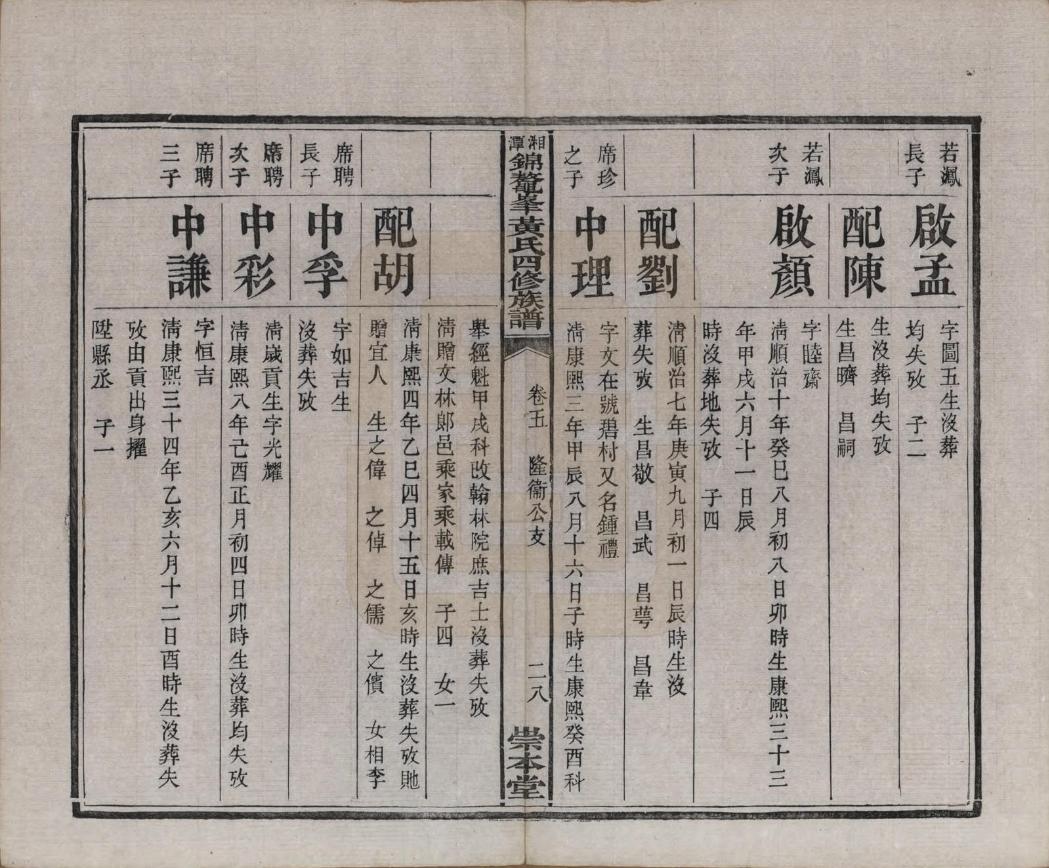 若鳳
長子
啟孟
字圖五生沒葬
均失攷　子二
配陳
生沒葬均失攷
生昌嚌　昌嗣
若鳳
次子
啟顏
字睦齋
清順治十年癸巳八月初八日卯時生康熙三十三
年甲戌六月十一日辰
時沒葬地失攷　子四
配劉
清順治七年庚寅九月初一日辰時生沒
葬失攷　生昌敬　昌武　昌蕚　昌韋
席珍
之子
中理
字文在號碧村又名鍾禮
清康熙三年甲辰八月十六日子時生康熙癸酉科
湘潭錦鰲峯黃氏四修族譜
卷五　隆衞公支
二八
崇本堂
舉經魁甲戌科改翰林院庶吉士沒葬失攷
清贈文林郞邑乘家乘載傳　子四　女一
配胡
清康熙四年乙巳四月十五日亥時生沒葬失攷貤
贈宜人　生之偉　之倬　之儒　之儐　女相李
席聘
長子
中孚
字如吉生
沒葬失攷
席聘
次子
中彩
清歲貢生字光耀
清康熙八年己酉正月初四日卯時生沒葬均失攷
席聘
三子
中謙
字恒吉
清康熙三十四年乙亥六月十二日酉時生沒葬失
攷由貢出身擢
陞縣丞　子一